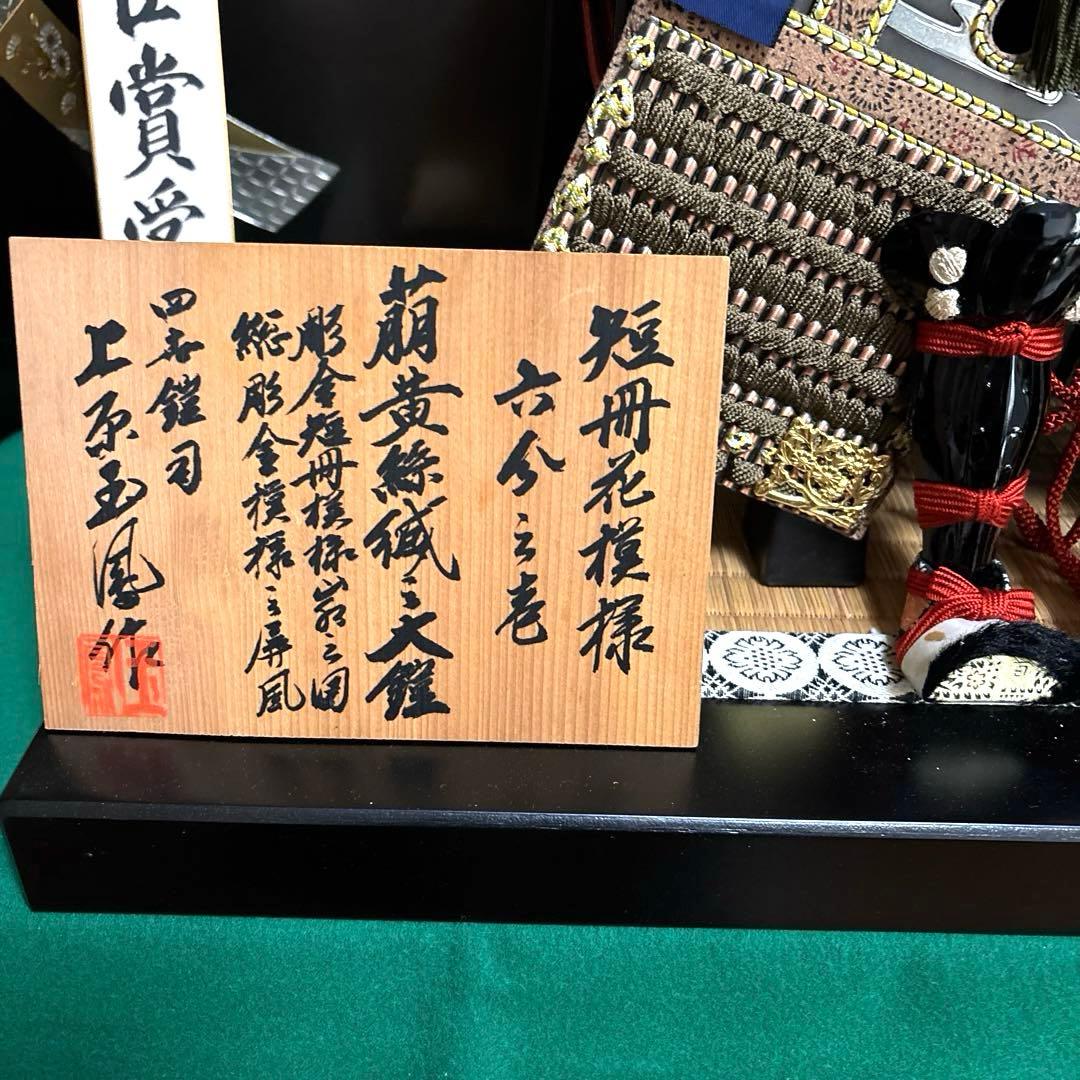 短冊花模様
六分之壱
萌黄絲縅之大鎧
彫金短冊模様之図
総彫金模様之屏風
鎧司
上原玉鳳作
賞受